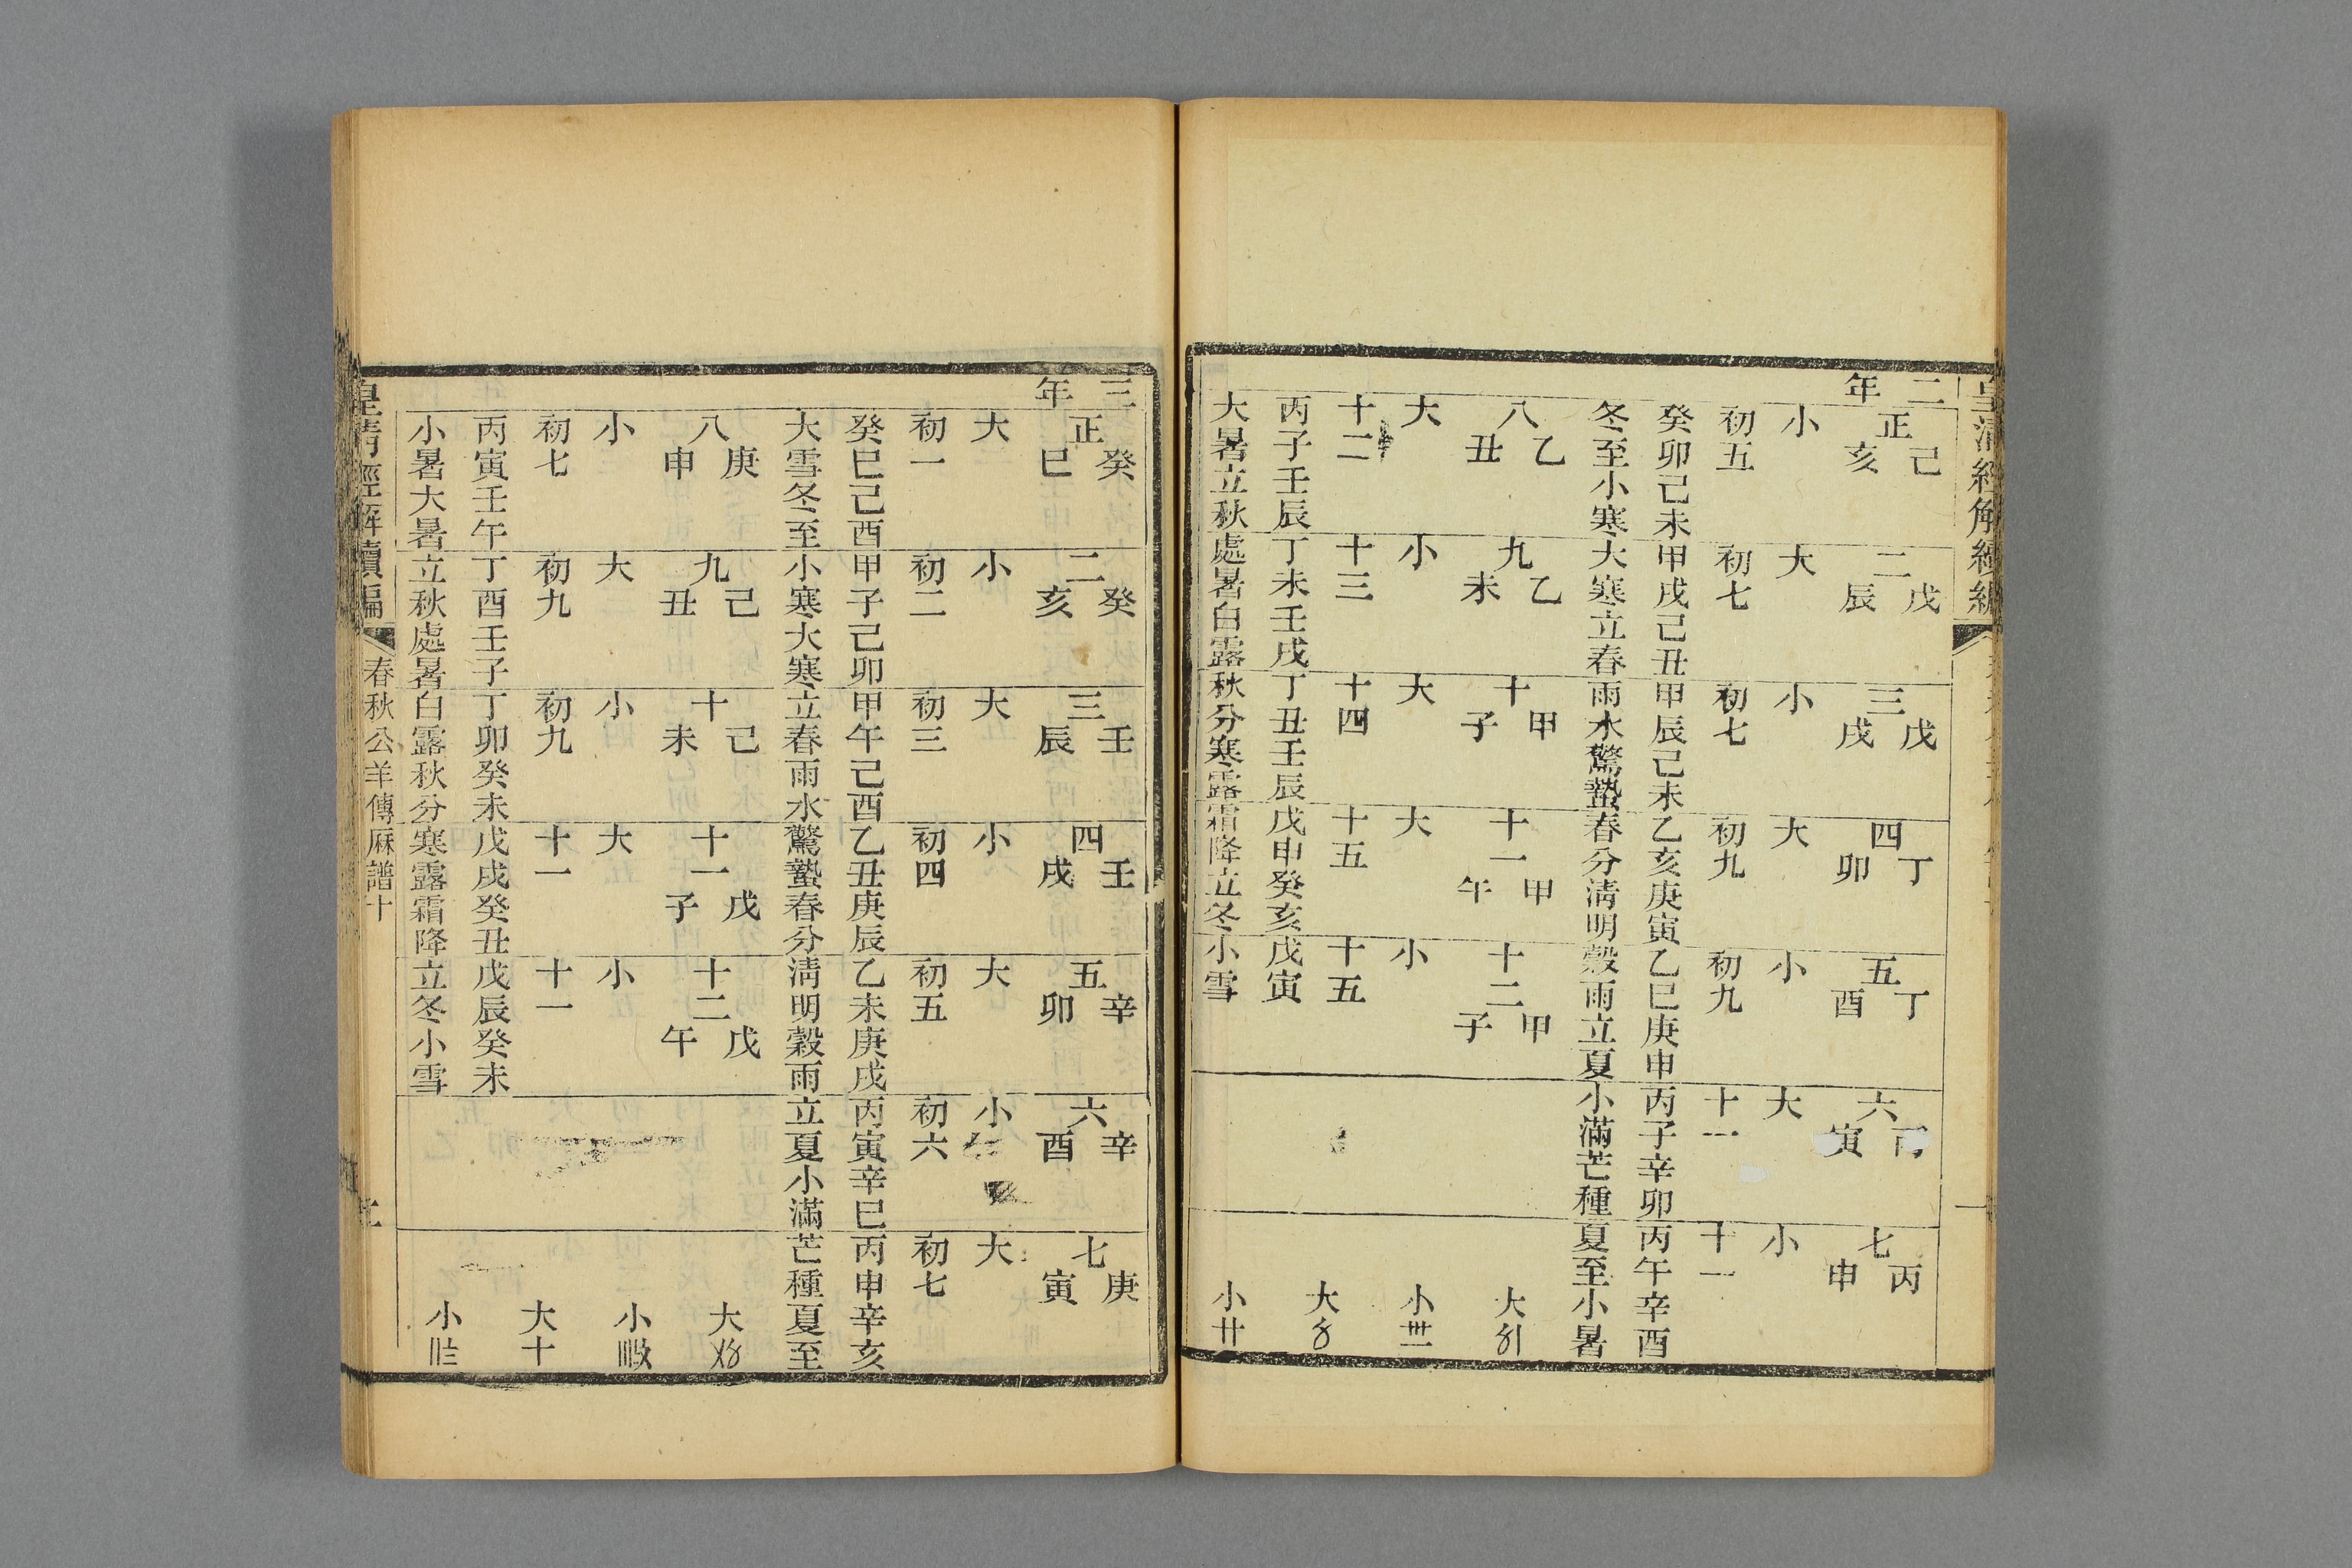 皇清經解續編
二年
正己亥 二戊辰 三戊戌 四丁卯 五丁酉 六丙寅 七丙申
小 大 小 大 小 大 小
初五 初七 初七 初九 初九 十一 十一
癸卯己未 甲戌己丑 甲辰己未 乙亥庚寅 乙巳庚申 丙子辛卯 丙午辛酉
冬至小寒 大寒立春 雨水驚蟄 春分清明 穀雨立夏 小滿芒種 夏至小暑
八乙丑 九乙未 十甲子 十一甲午 十二甲子 大
大 小 大 大 小 小
十二 十三 十四 十五 十五 大
丙子壬辰 丁未壬戌 丁丑壬辰 戊申癸亥 戊寅
大暑立秋 處暑白露 秋分寒露 霜降立冬 小雪 小廿
三年
正癸巳 二癸亥 三壬辰 四壬戌 五辛卯 六辛酉 七庚寅
大 小 大 小 大 小 大
初一 初二 初三 初四 初五 初六 初七
癸巳己酉 甲子己卯 甲午己酉 乙丑庚辰 乙未庚戌 丙寅辛巳 丙申辛亥
大雪冬至 小寒大寒 立春雨水 驚蟄春分 清明穀雨 立夏小滿 芒種夏至
八庚申 九己丑 十己未 十一戊子 十二戊午 大
小 大 小 大 小 小
初七 初九 初九 十一 十一 大十
丙寅壬午 丁酉壬子 丁卯癸未 戊戌癸丑 戊辰癸未
小暑大暑 立秋處暑 白露秋分 寒露霜降 立冬小雪 小
皇清經解續編 春秋公羊傳厤譜十